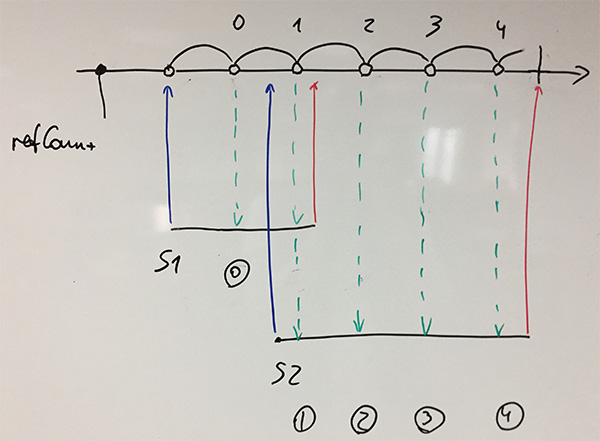 0 1 2 3 4
refCount
S1 0
S2
1 2 3 4